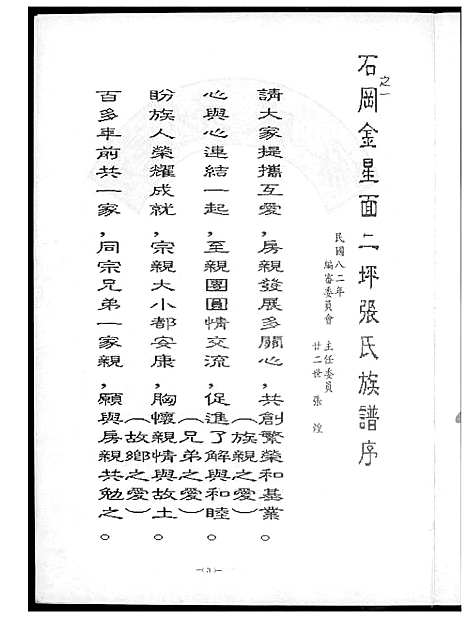 石岡金星面二坪張氏族譜序
之一
民國八二年
編審委員會　主任委員
廿二世　張　煌
請大家提攜互愛，房親發展多關心，共創繁榮和基業。
（族親之愛）
心與心連結一起，至親團圓情交流，促進了解與和睦。
（兄弟之愛）
盼族人榮耀成就，宗親大小都安康，胸懷親情與故土。
（故鄉之愛）
百多年前共一家，同宗兄弟一家親，願與房親共勉之。
—(3)—